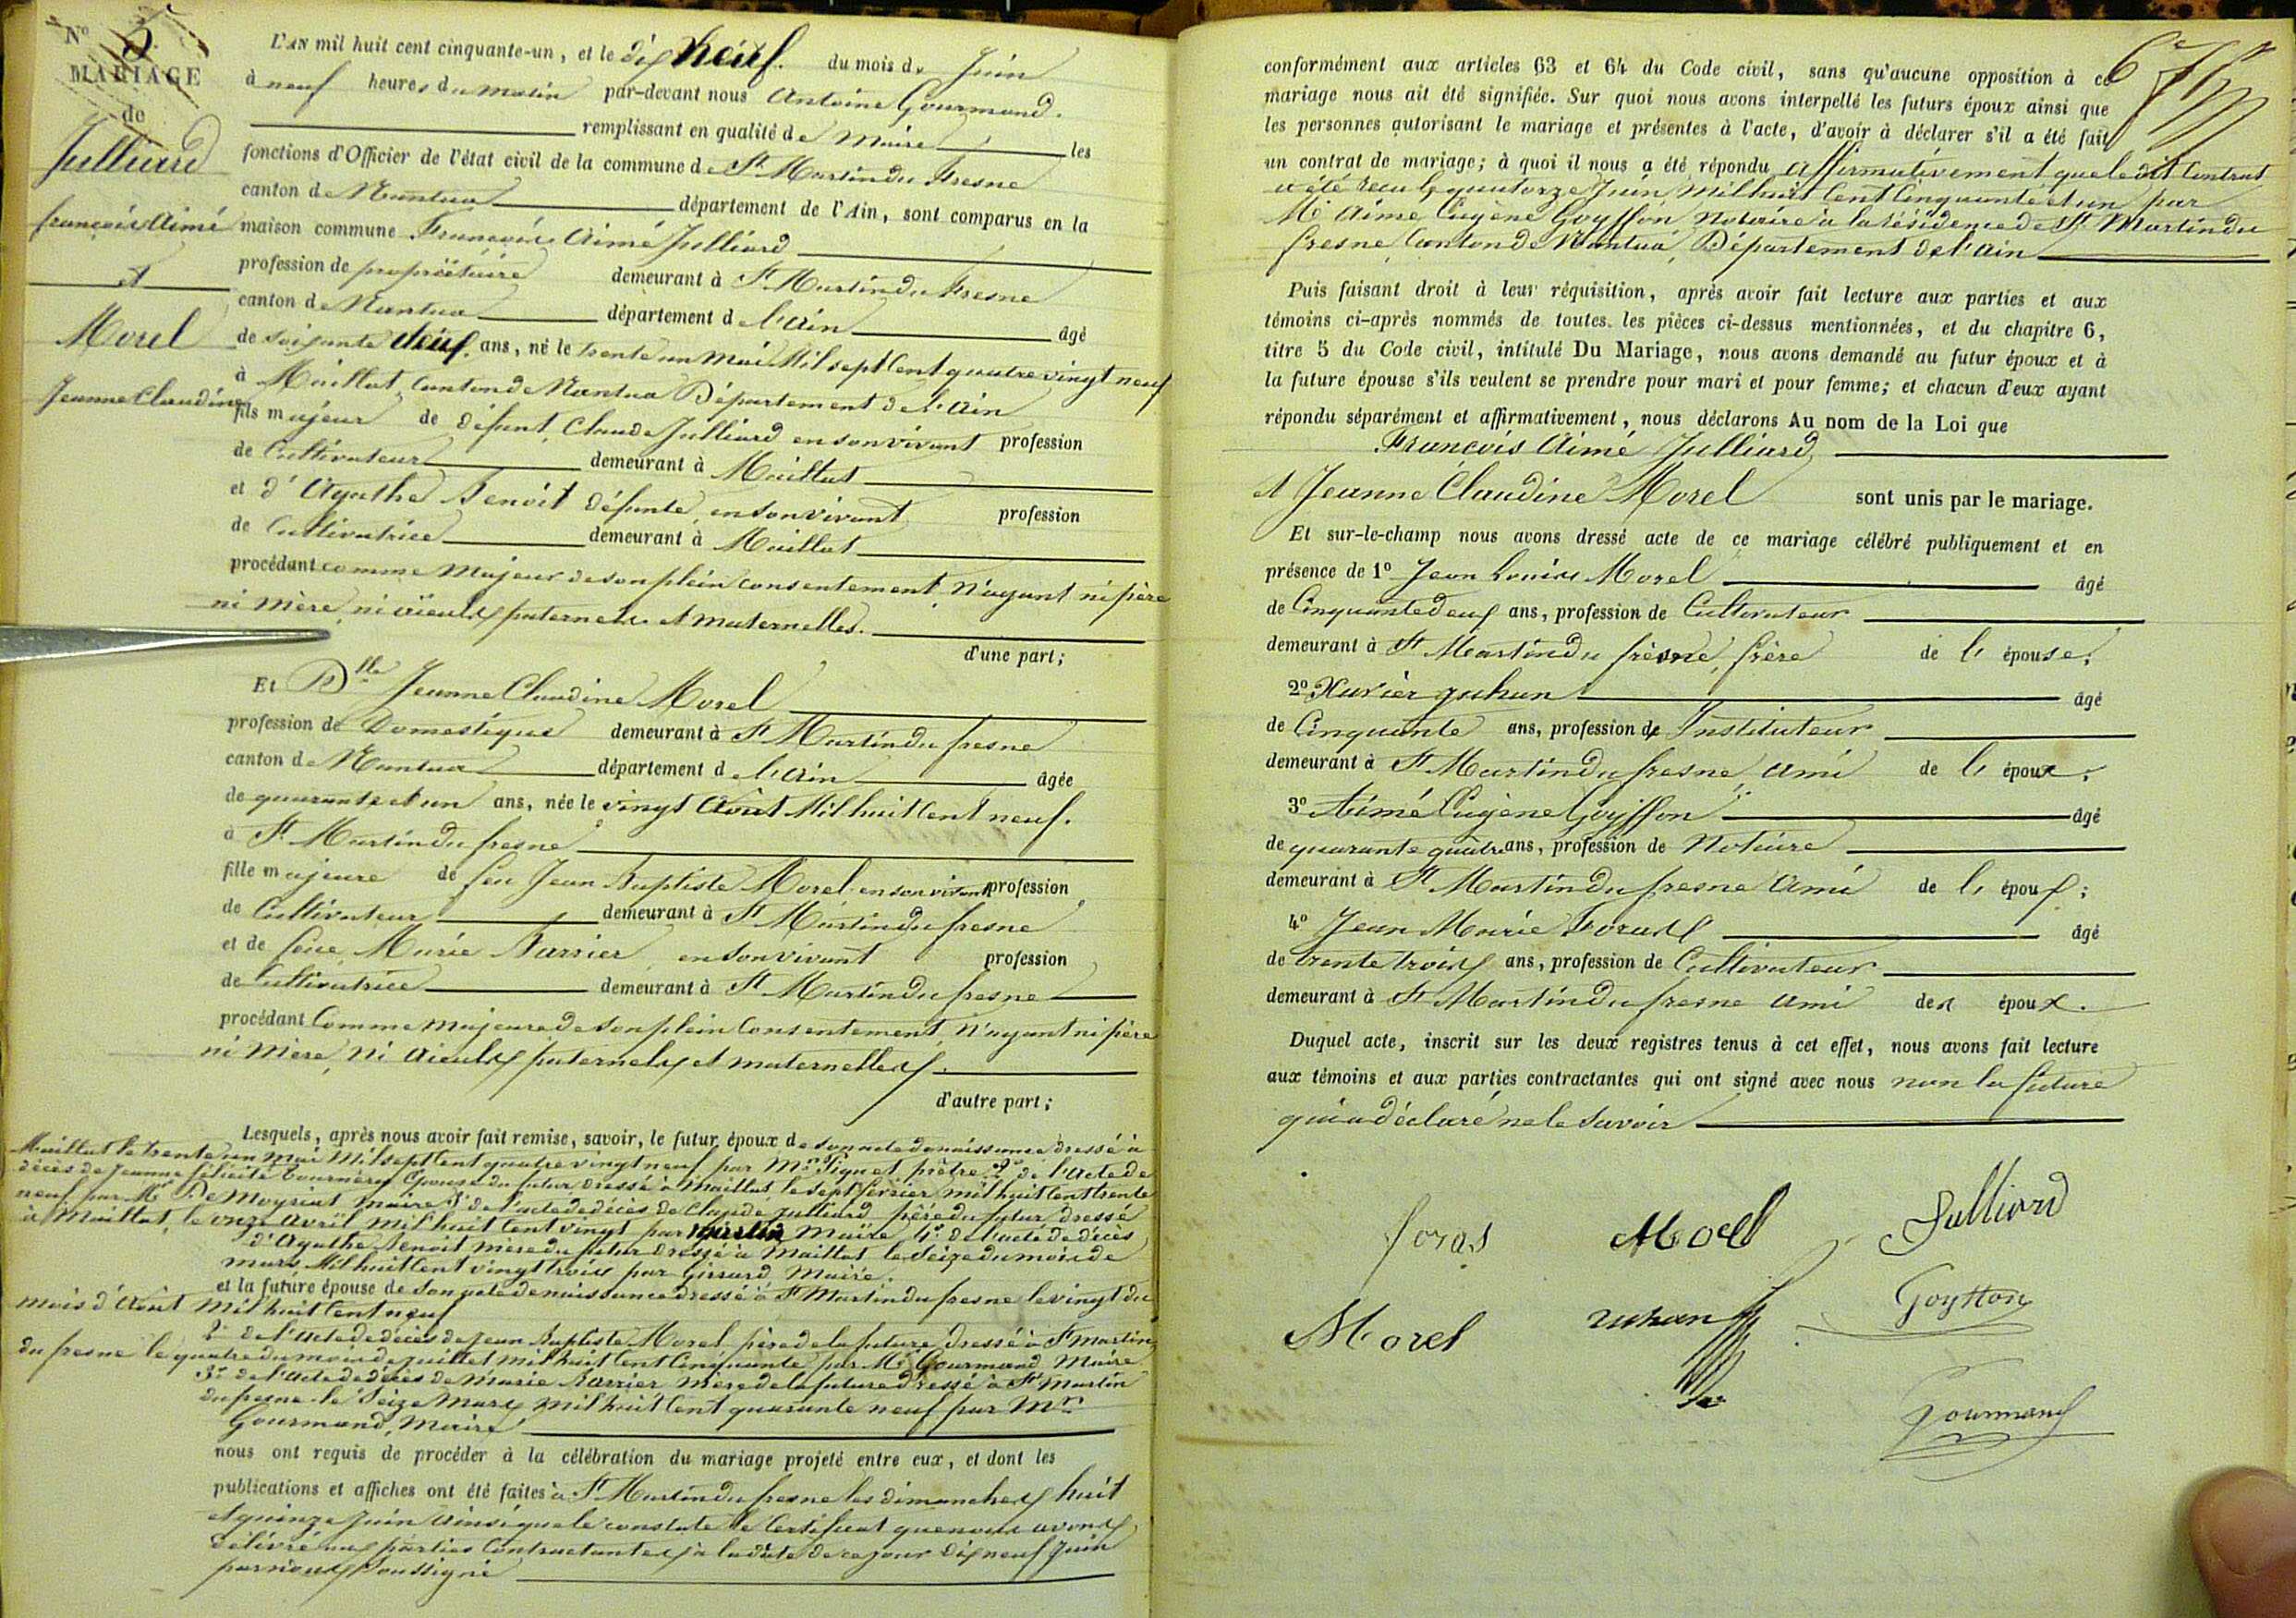 N° 5.
MARIAGE
de
Julliard
françois Aimé
et
Morel
Jeanne Claudine
L'AN mil huit cent cinquante-un, et le dix neuf. du mois de Juin
à neuf heures du matin par-devant nous Antoine Gourmand.
remplissant en qualité de Maire les
fonctions d'Officier de l'état civil de la commune de St Martin du Fresne
canton de Nantua département de l'Ain, sont comparus en la
maison commune François Aimé Julliard
profession de propriétaire demeurant à St Martin du Fresne
canton de Nantua département de l'Ain âgé
de soixante deux ans, né le trente un Mai Mil sept Cent quatre vingt neuf
à Maillat, Canton de Nantua Département de l'Ain
fils majeur de défunt Claude Julliard en son vivant profession
de Cultivateur demeurant à Maillat
et d'Agathe Benoit défunte, en son vivant profession
de Cultivatrice demeurant à Maillat
procédant comme Majeur de son plein consentement, N'ayant ni père
ni Mère, ni aïeulx paternels et maternelles.
d'une part;
Et Dlle Jeanne Claudine Morel
profession de Domestique demeurant à St Martin du fresne
canton de Nantua département de l'Ain âgée
de quarante et un ans, née le vingt Août Mil huit Cent neuf.
à St Martin du fresne
fille majeure de feu Jean Baptiste Morel en son vivant profession
de Cultivateur demeurant à St Martin du fresne
et de feue Marie Barrier, en son vivant profession
de Cultivatrice demeurant à St Martin du fresne
procédant Comme Majeure de son plein Consentement, N'ayant ni père
ni Mère, Ni Aieulx paternelx et maternellex.
d'autre part;
Lesquels, après nous avoir fait remise, savoir, le futur époux de son acte de naissance dressé à
Maillat le trente un Mai Mil sept Cent quatre vingt neuf par Mr Piquet prêtre 2° de l'Acte de
décès de Jeanne félicité Epouse du futur dressé à Maillat, le sept février mil huit Cent trente
neuf par Mr De Moyriat Maire 3° de l'acte de décès de Claude Julliard père du futur dressé
à Maillat, le onze Avril Mil huit Cent vingt par Maire 4° de l'acte de décès
d'Agathe Benoit mère du futur dressé à Maillat le seize du mois de
mars Mil huit Cent vingt trois par Girard Maire.
et la future épouse de son acte de naissance dressé à St Martin du fresne le vingt du
mois d'Août Mil huit Cent neuf
2° de l'acte de décès de Jean Baptiste Morel père de la future dressé à St Martin
du fresne le quatre du mois de juillet mil huit Cent Cinquante par Mr Gourmand Maire
3° de l'acte de décès de Marie Barrier Mère de la future dressé à St Martin
du fresne le seize Mars Mil huit Cent quarante neuf par Mr
Gourmand, Maire
nous ont requis de procéder à la célébration du mariage projeté entre eux, et dont les
publications et affiches ont été faites à St Martin du fresne les dimanches huit
et quinze Juin Ainsi que le constate le Certificat que nous avons
délivré aux parties Contractantes à la date de ce jour dix neuf Juin
par nous Soussigné
6
conformément aux articles 63 et 64 du Code civil, sans qu'aucune opposition à ce
mariage nous ait été signifiée. Sur quoi nous avons interpellé les futurs époux ainsi que
les personnes autorisant le mariage et présentes à l'acte, d'avoir à déclarer s'il a été fait
un contrat de mariage; à quoi il nous a été répondu affirmativement que le dit Contrat
a été reçu le quatorze Juin, Mil huit Cent Cinquante et un par
Me Aimé Eugène Goyffon, Notaire à la résidence de St Martin du
fresne, Canton de Nantua, Département de l'Ain
Puis faisant droit à leur réquisition, après avoir fait lecture aux parties et aux
témoins ci-après nommés de toutes les pièces ci-dessus mentionnées, et du chapitre 6,
titre 5 du Code civil, intitulé Du Mariage, nous avons demandé au futur époux et à
la future épouse s'ils veulent se prendre pour mari et pour femme; et chacun d'eux ayant
répondu séparément et affirmativement, nous déclarons Au nom de la Loi que
François Aimé Julliard
et Jeanne Claudine Morel sont unis par le mariage.
Et sur-le-champ nous avons dressé acte de ce mariage célébré publiquement et en
présence de 1° Jean Louis Morel âgé
de Cinquante deux ans, profession de Cultivateur
demeurant à St Martin du fresne, frère de l'épouse;
2° Xavier Juhan âgé
de Cinquante ans, profession de Instituteur
demeurant à St Martin du fresne, ami de l'époux;
3° Aimé Eugène Goyffon âgé
de quarante quatre ans, profession de Notaire
demeurant à St Martin du fresne Ami de l'époux;
4° Jean Marie Foras âgé
de trente trois ans, profession de Cultivateur
demeurant à St Martin du fresne ami des époux.
Duquel acte, inscrit sur les deux registres tenus à cet effet, nous avons fait lecture
aux témoins et aux parties contractantes qui ont signé avec nous non la future
qui a déclaré ne le savoir
foras Morel Julliard
Morel Juhan Goyffon
Gourmand